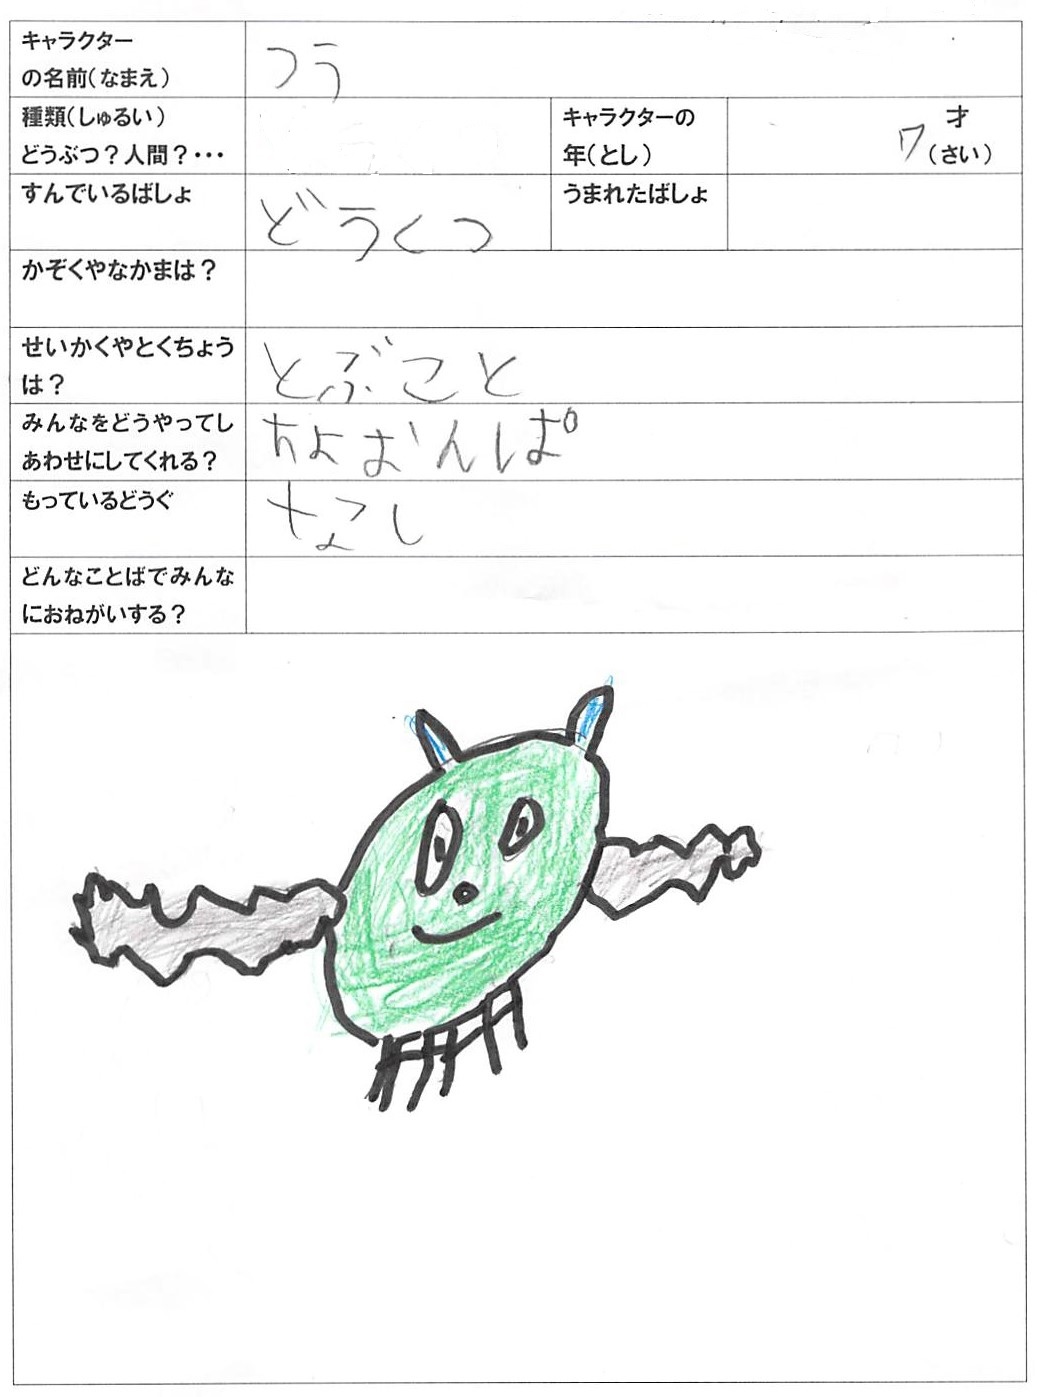 キャラクター
の名前(なまえ)
つう
種類(しゅるい)
どうぶつ?人間?・・・
キャラクターの
年(とし)
7
才
(さい)
すんでいるばしょ
どうくつ
うまれたばしょ
かぞくやなかまは?
せいかくやとくちょう
は?
とぶこと
みんなをどうやってし
あわせにしてくれる?
ちよおんぱ
もっているどうぐ
なし
どんなことばでみんな
におねがいする?